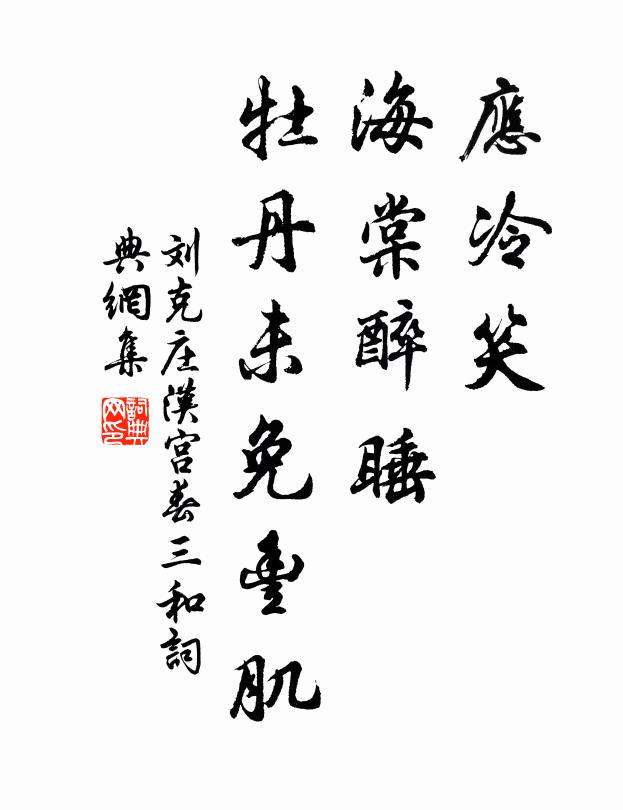 應冷笑
海棠醉睡
牡丹未免豐肌
刘克庄漢宫春三和詞
典網集
詞典
网印